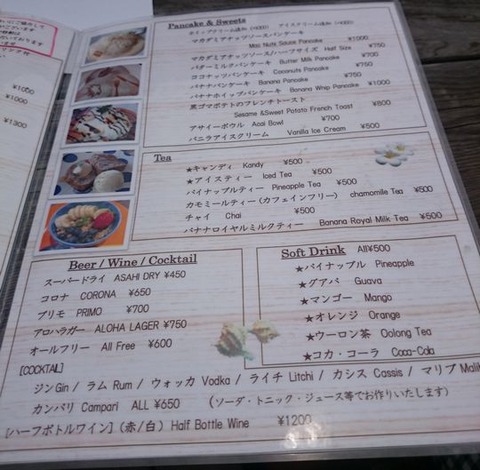 Pancake & Sweets
マカダミアナッツソースパンケーキ
Mac Nuts Sauce Pancake ¥1000
マカダミアナッツソース/ハーフサイズ Half Size ¥750
バターミルクパンケーキ Butter Milk Pancake ¥700
ココナッツパンケーキ Coconuts Pancake ¥750
バナナパンケーキ Banana Pancake ¥750
バナナホイップパンケーキ Banana Whip Pancake ¥1000
黒ゴマポテトのフレンチトースト
Sesame &Sweet Potato French Toast ¥800
アサイーボウル Acai Bowl ¥700
バニラアイスクリーム Vanilla Ice Cream ¥500
Tea
★キャンディ Kandy ¥500
★アイスティー Iced Tea ¥500
パイナップルティー Pineapple Tea ¥500
カモミールティー(カフェインフリー) chamomile Tea ¥500
チャイ Chai ¥500
バナナロイヤルミルクティー Banana Royal Milk Tea ¥500
Beer/Wine/Cocktail
スーパードライ ASAHI DRY ¥450
コロナ CORONA ¥650
プリモ PRIMO ¥700
アロハラガー ALOHA LAGER ¥750
オールフリー All Free ¥600
[COCKTAIL]
ジンGin / ラム Rum / ウォッカ Vodka / ライチ Litchi / カシス Cassis / マリブ Mali
カンパリ Campari ALL ¥650 (ソーダ・トニック・ジュース等でお作りいたします)
[ハーフボトルワイン] (赤/白) Half Bottle Wine ¥1200
Soft Drink All¥500
★パイナップル Pineapple
★グアバ Guava
★マンゴー Mango
★オレンジ Orange
★ウーロン茶 Oolong Tea
★コカ・コーラ Coca-Cola
¥1050
¥1000
¥1300